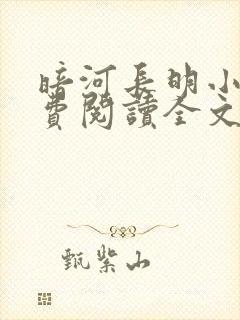 暗河長明小
費閱讀全文
甄紫山